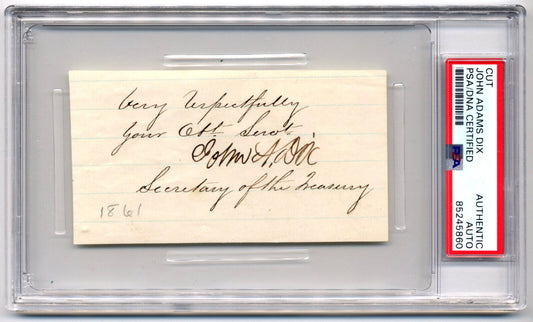 Very respectfully
your Obt. Servt.
John A. Dix
Secretary of the Treasury
1861
CUT
JOHN ADAMS DIX
PSA/DNA CERTIFIED
PSA
AUTHENTIC
AUTO
85245860